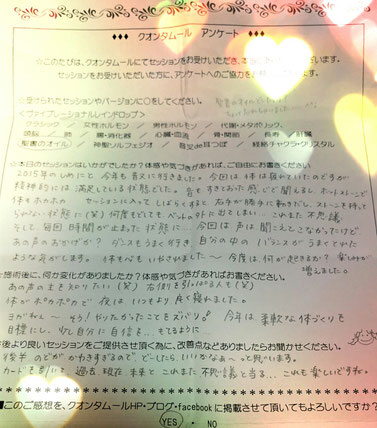 ◆◆◆ クオンタムール アンケート ◆◆◆
☆このたびは、クオンタムールにてセッションをお受けいただき、
セッションをお受けいただいた方に、アンケートへのご協力を
☆受けられたセッションやバージョンに○をしてください。
＜ヴァイブレーショナルレインドロップ＞
クラシック / 女性ホルモン / 男性ホルモン / 代謝・メタボリック、
喘息 / 肺 / 胃・消化器 / 心臓・血流 / 骨・関節 / 長寿 / 肝臓
聖書のオイル / 神聖ソルフェジオ / 音叉de耳つぼ / 経絡チャクラ・クリスタル
☆本日のセッションはいかがでしたか？体感や気づきがあれば、ご自由にお書きください
2015年のしめにと今年も音叉に行きました。今回は体は疲れていたのですが
精神的には満足している状態でした。
体もポカポカ セッションに入ってしばらくすると右手が勝手に動きだし
らない状態に(笑) 何度もどしても、ベットの外に出てしまい… これまた不思議
そして、毎回時間が止まった状態に… 今回は声は聞こえどこなかったけど
あの声のおかげか？ ダンスもうまく行き、自分の中のバランスがうまくとれた
ような気がします。 今度は何が起きるか？ 楽しみが
増えました。
施術後に、何か変化がありましたか？体感や気づきがあればお書きください。
あの声の主を知りたい(笑)
体がポカポカで夜はいつもより良く寝れました。
今年は柔軟な体づくりを
目標にし、少し自分に自信を… もてるように…
より良いセッションをご提供させて頂く為に、改善点などありましたらお聞かせください。
後半のどがかわきすぎるので、どーしたらいいかなぁ〜って思います。
カードを引いて過去 現在 未来とこれまた不思議と当る… これも楽しいですね。
■このご感想を、クオンタムールHP・ブログ・facebookに掲載させて頂いてもよろしいですか？
YES ・ NO